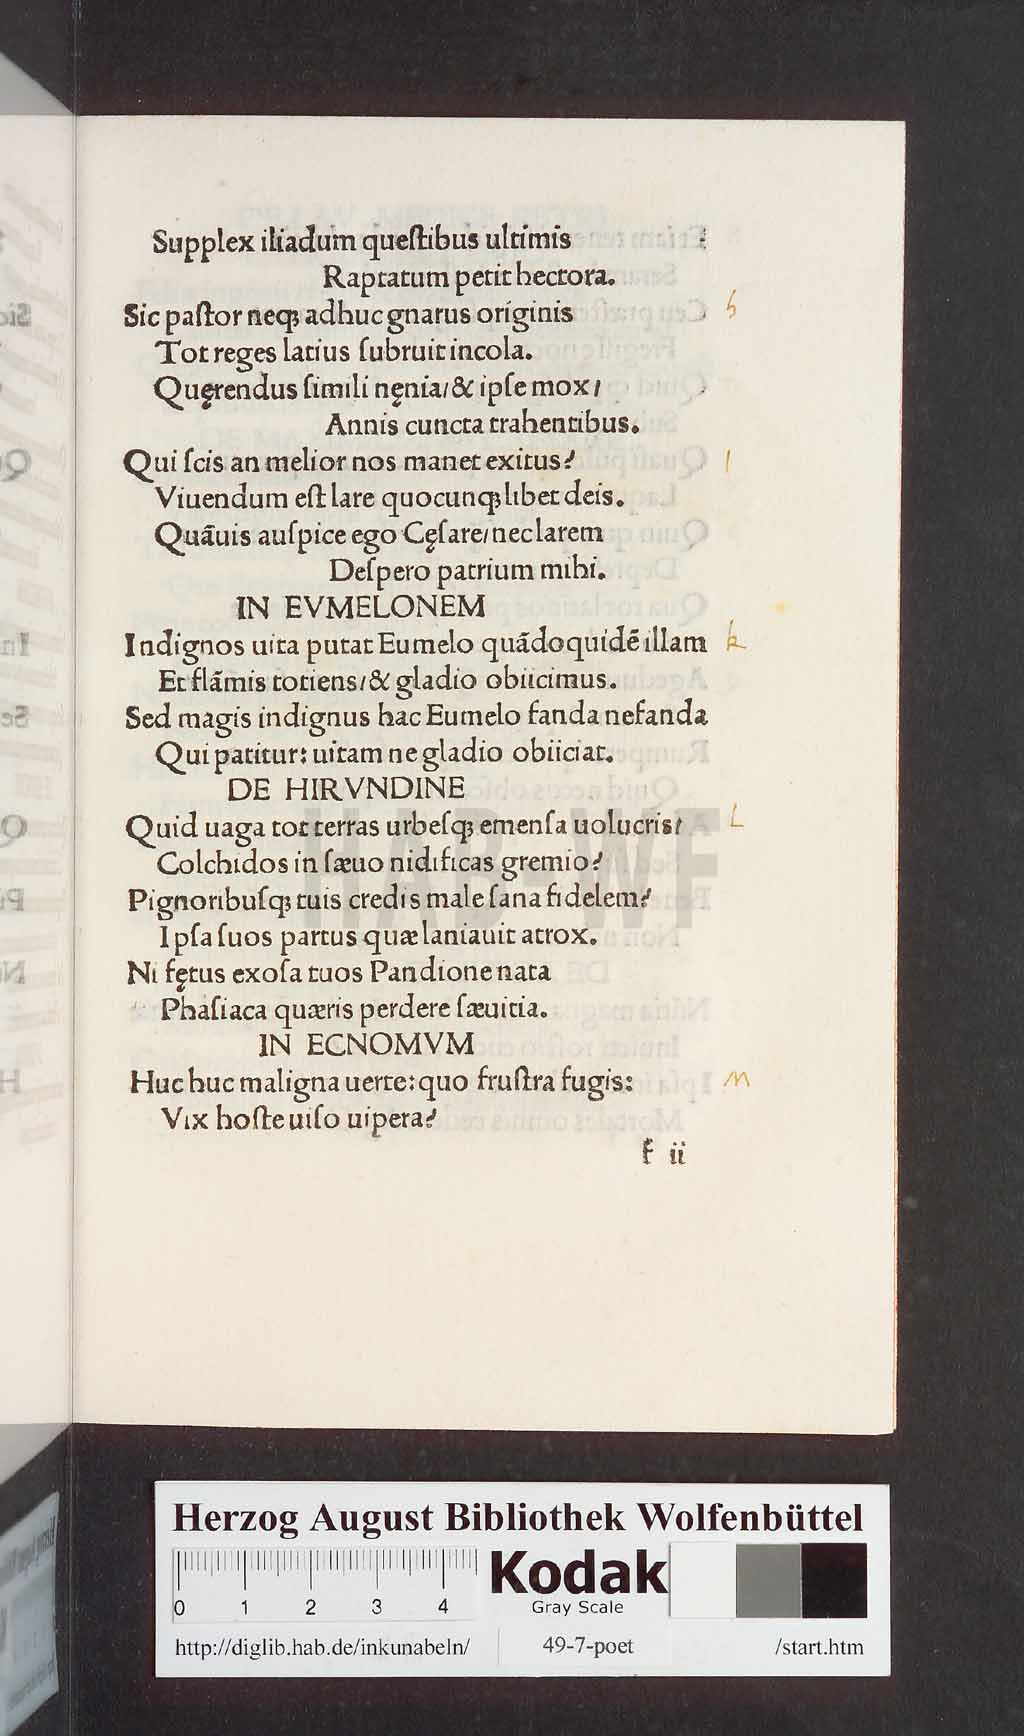 Supplex iliadum queſtibus ultimis
Raptatum petit hectora.
Sic paſtor neqꝫ adhuc gnarus originis
Tot reges latius ſubruit incola.
Quęrendus ſimili nęnia/& ipſe mox/
Annis cuncta trahentibus.
Qui ſcis an melior nos manet exitus?
Viuendum eſt lare quocunqꝫ libet deis.
Quãuis auſpice ego Cęſare/nec larem
Deſpero patrium mihi.
IN EVMELONEM
Indignos uita putat Eumelo quãdoquidẽ illam
Et flãmis totiens/& gladio obiicimus.
Sed magis indignus hac Eumelo fanda nefanda
Qui patitur: uitam ne gladio obiiciat.
DE HIRVNDINE
Quid uaga tot terras urbeſqꝫ emenſa uolucris/
Colchidos in ſæuo nidificas gremio?
Pignoribuſqꝫ tuis credis male ſana fidelem?
Ipſa ſuos partus quæ laniauit atrox.
Ni fętus exoſa tuos Pandione nata
Phaſiaca quæris perdere ſæuitia.
IN ECNOMVM
Huc huc maligna uerte: quo fruſtra fugis:
Vix hoſte uiſo uipera?
f ii
h
i
k
L
M
HAB-WF
Herzog August Bibliothek Wolfenbüttel
Kodak
Gray Scale
0 1 2 3 4
http://diglib.hab.de/inkunabeln/ 49-7-poet /start.htm